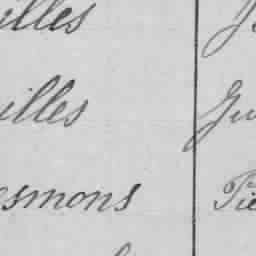 illes
illes Ju
esmons Pie